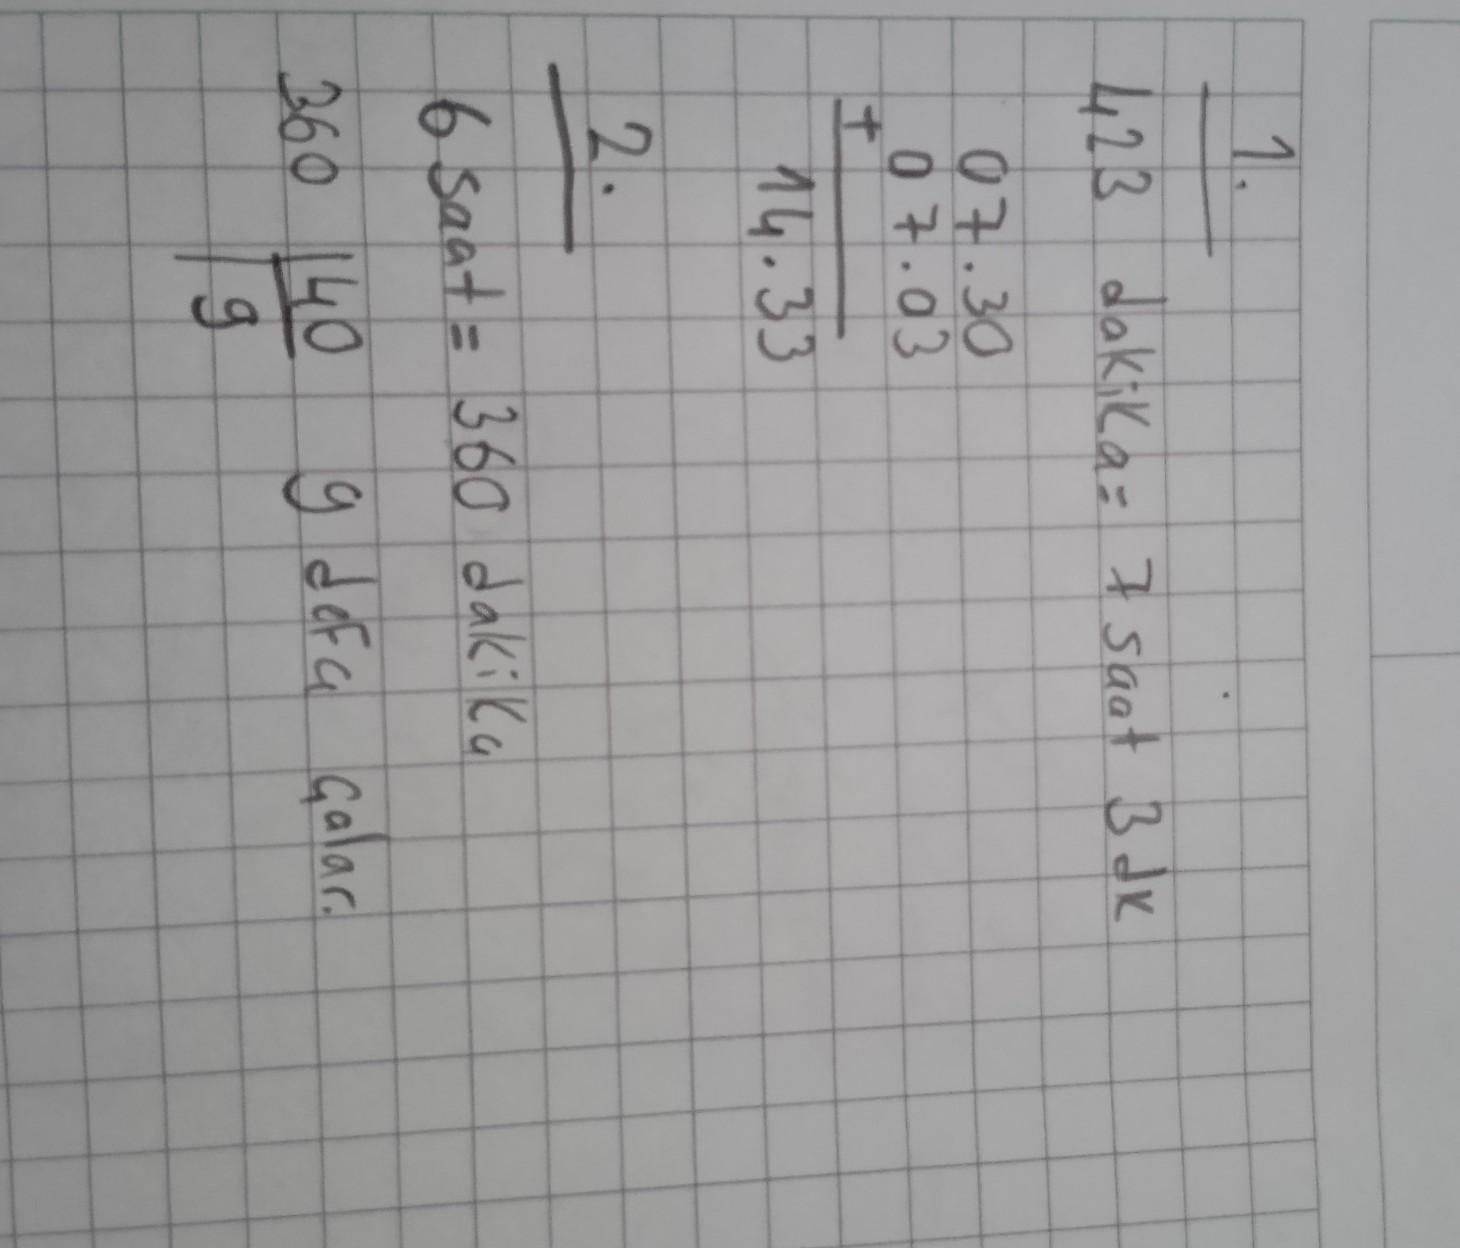 1.
423 dakika= 7 saat 3 dk
07.30
07.03
+
14.33
2.
6 saat= 360 dakika
360 40 9 defa çalar.
9